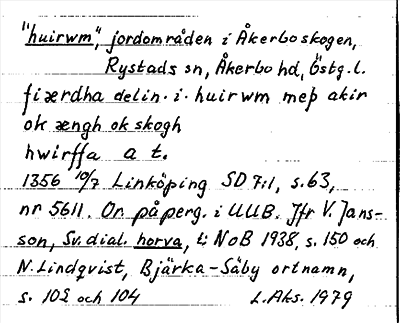 "huirwm", jordområden i Åkerboskogen,
Rystads sn, Åkerbo hd, Östg.l.
fiærdha delin. i. huirwm meþ akir
ok ængh ok skogh
hwirffa a t.
1356 10/7 Linköping SD 7:1, s.63,
nr 5611. Or. på perg. i UUB. Jfr V. Jans-
son, Sv. dial. horva, i: NoB 1938, s. 150 och
N. Lindqvist, Bjärka-Säby ortnamn,
s. 102 och 104 L. Aks. 1979